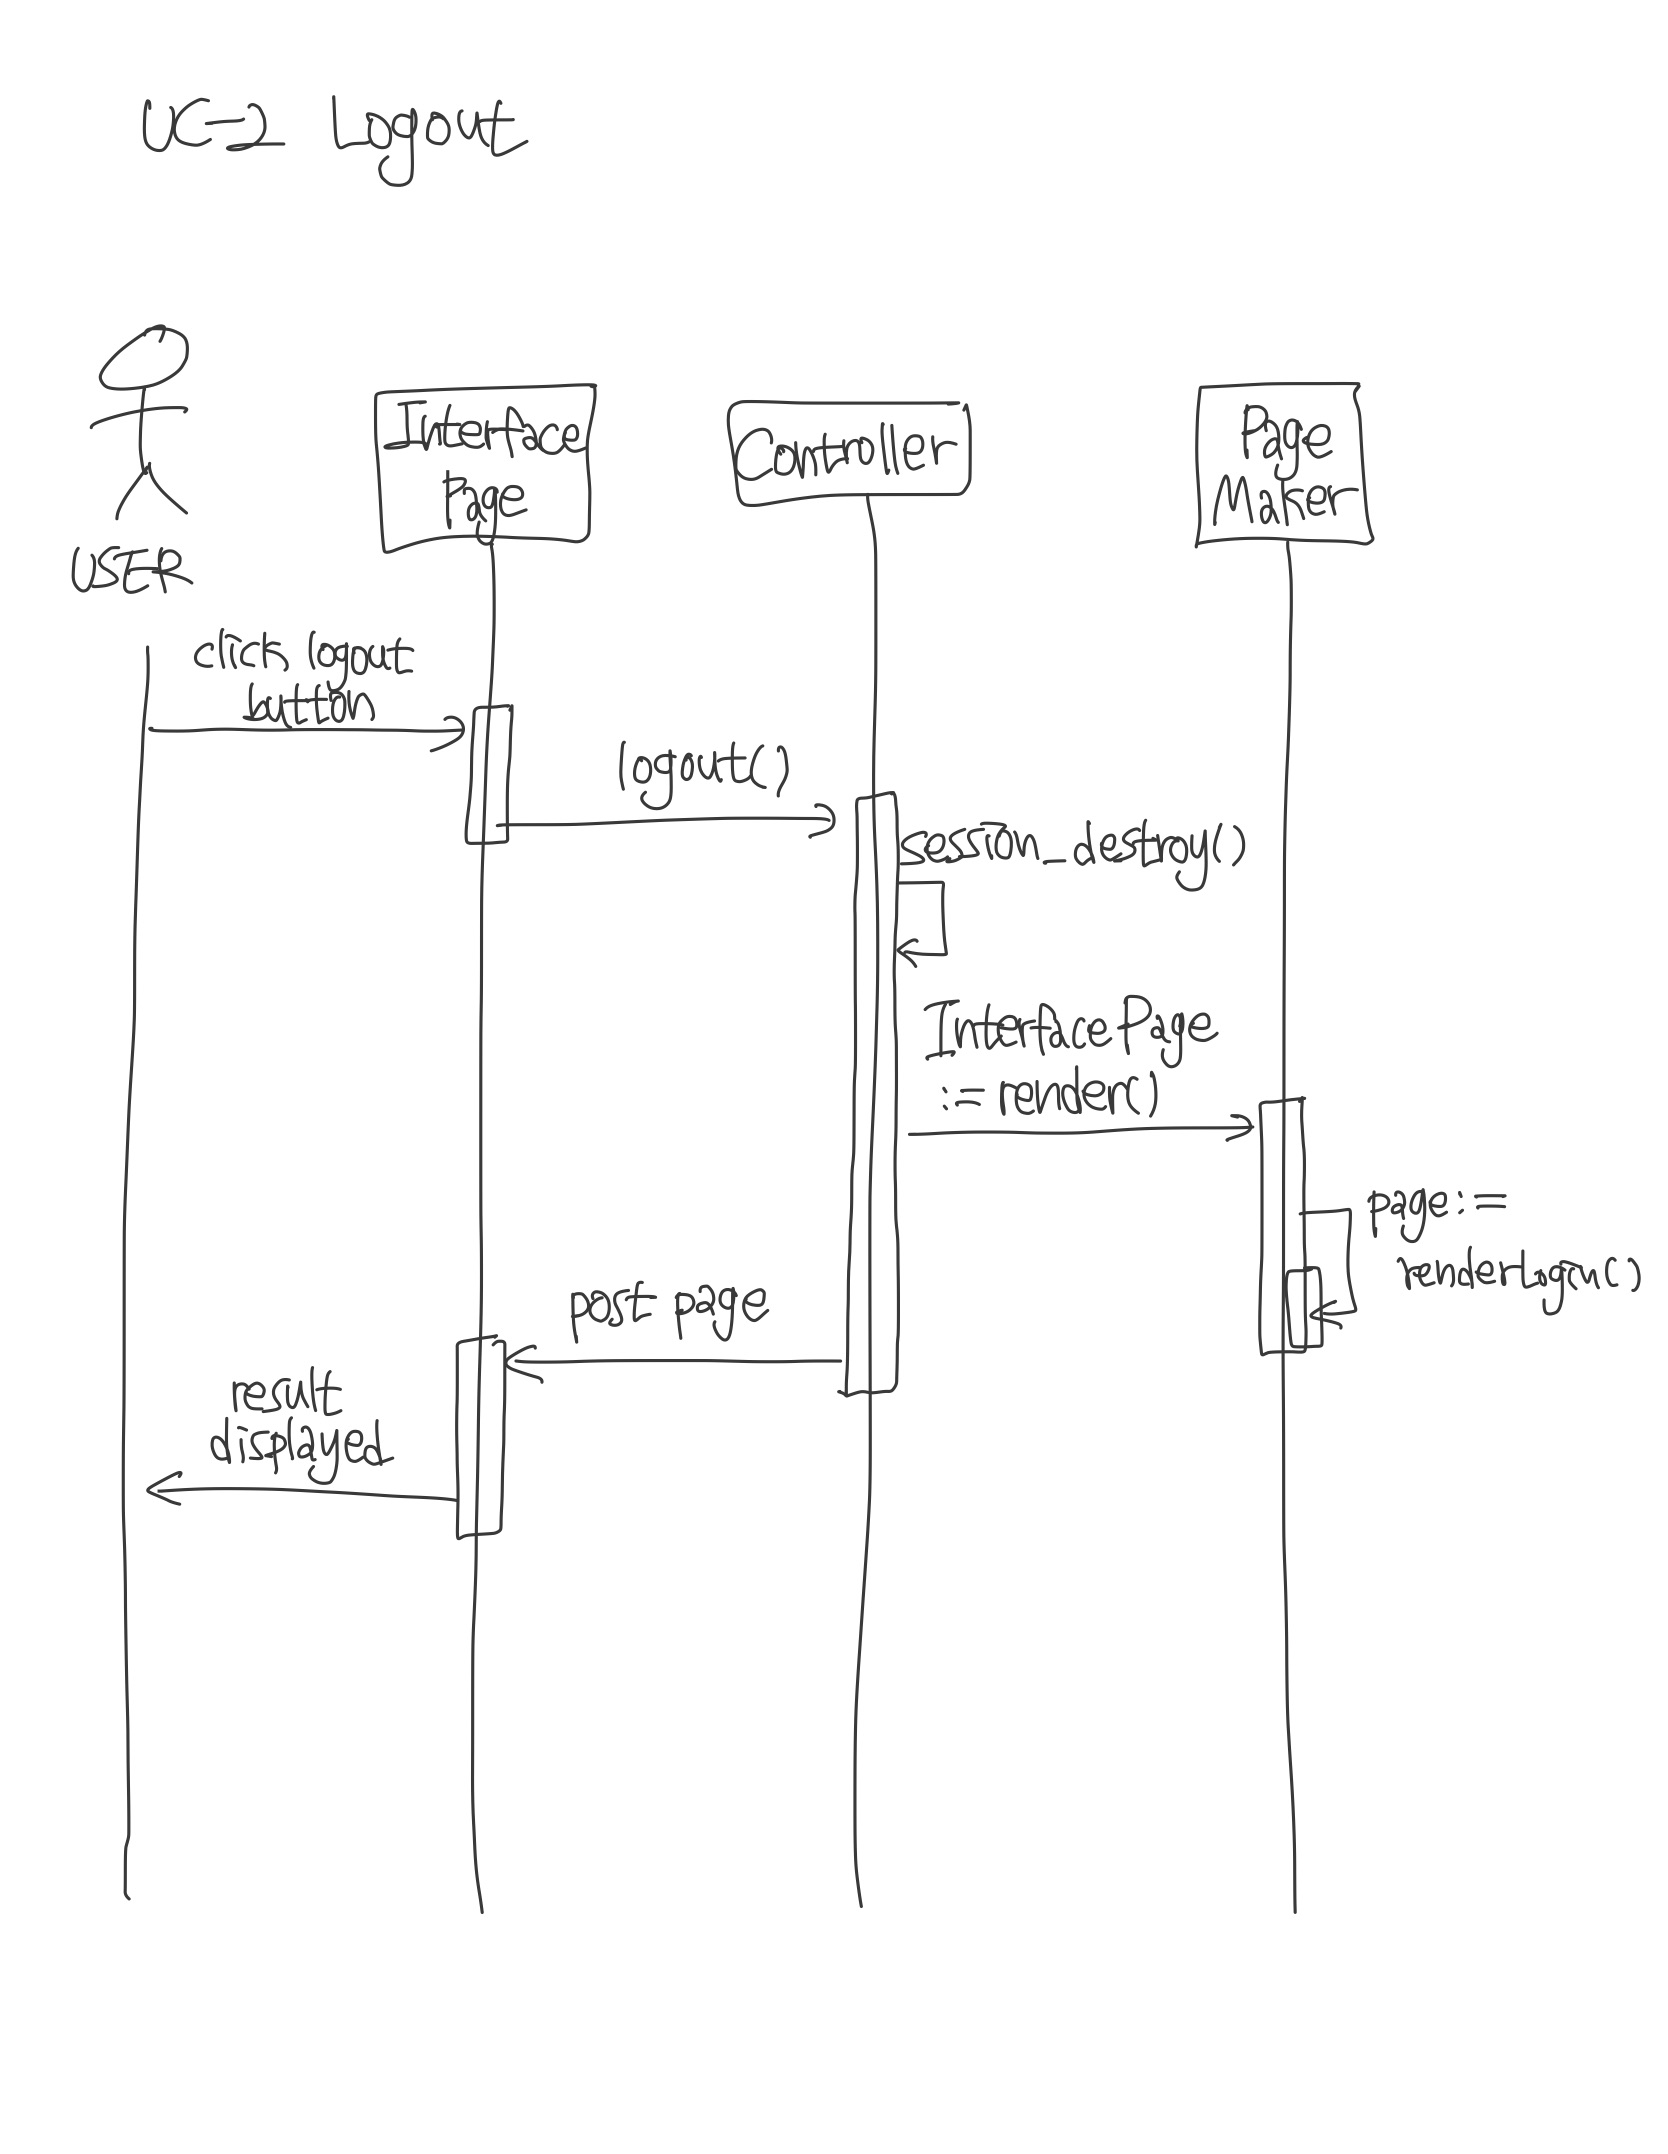 UC-2 Logout
USER
Interface
Page
Controller
Page
Maker
click logout
button
logout()
session_destroy()
Interface Page
:= render()
page:=
renderLogin()
post page
result
displayed